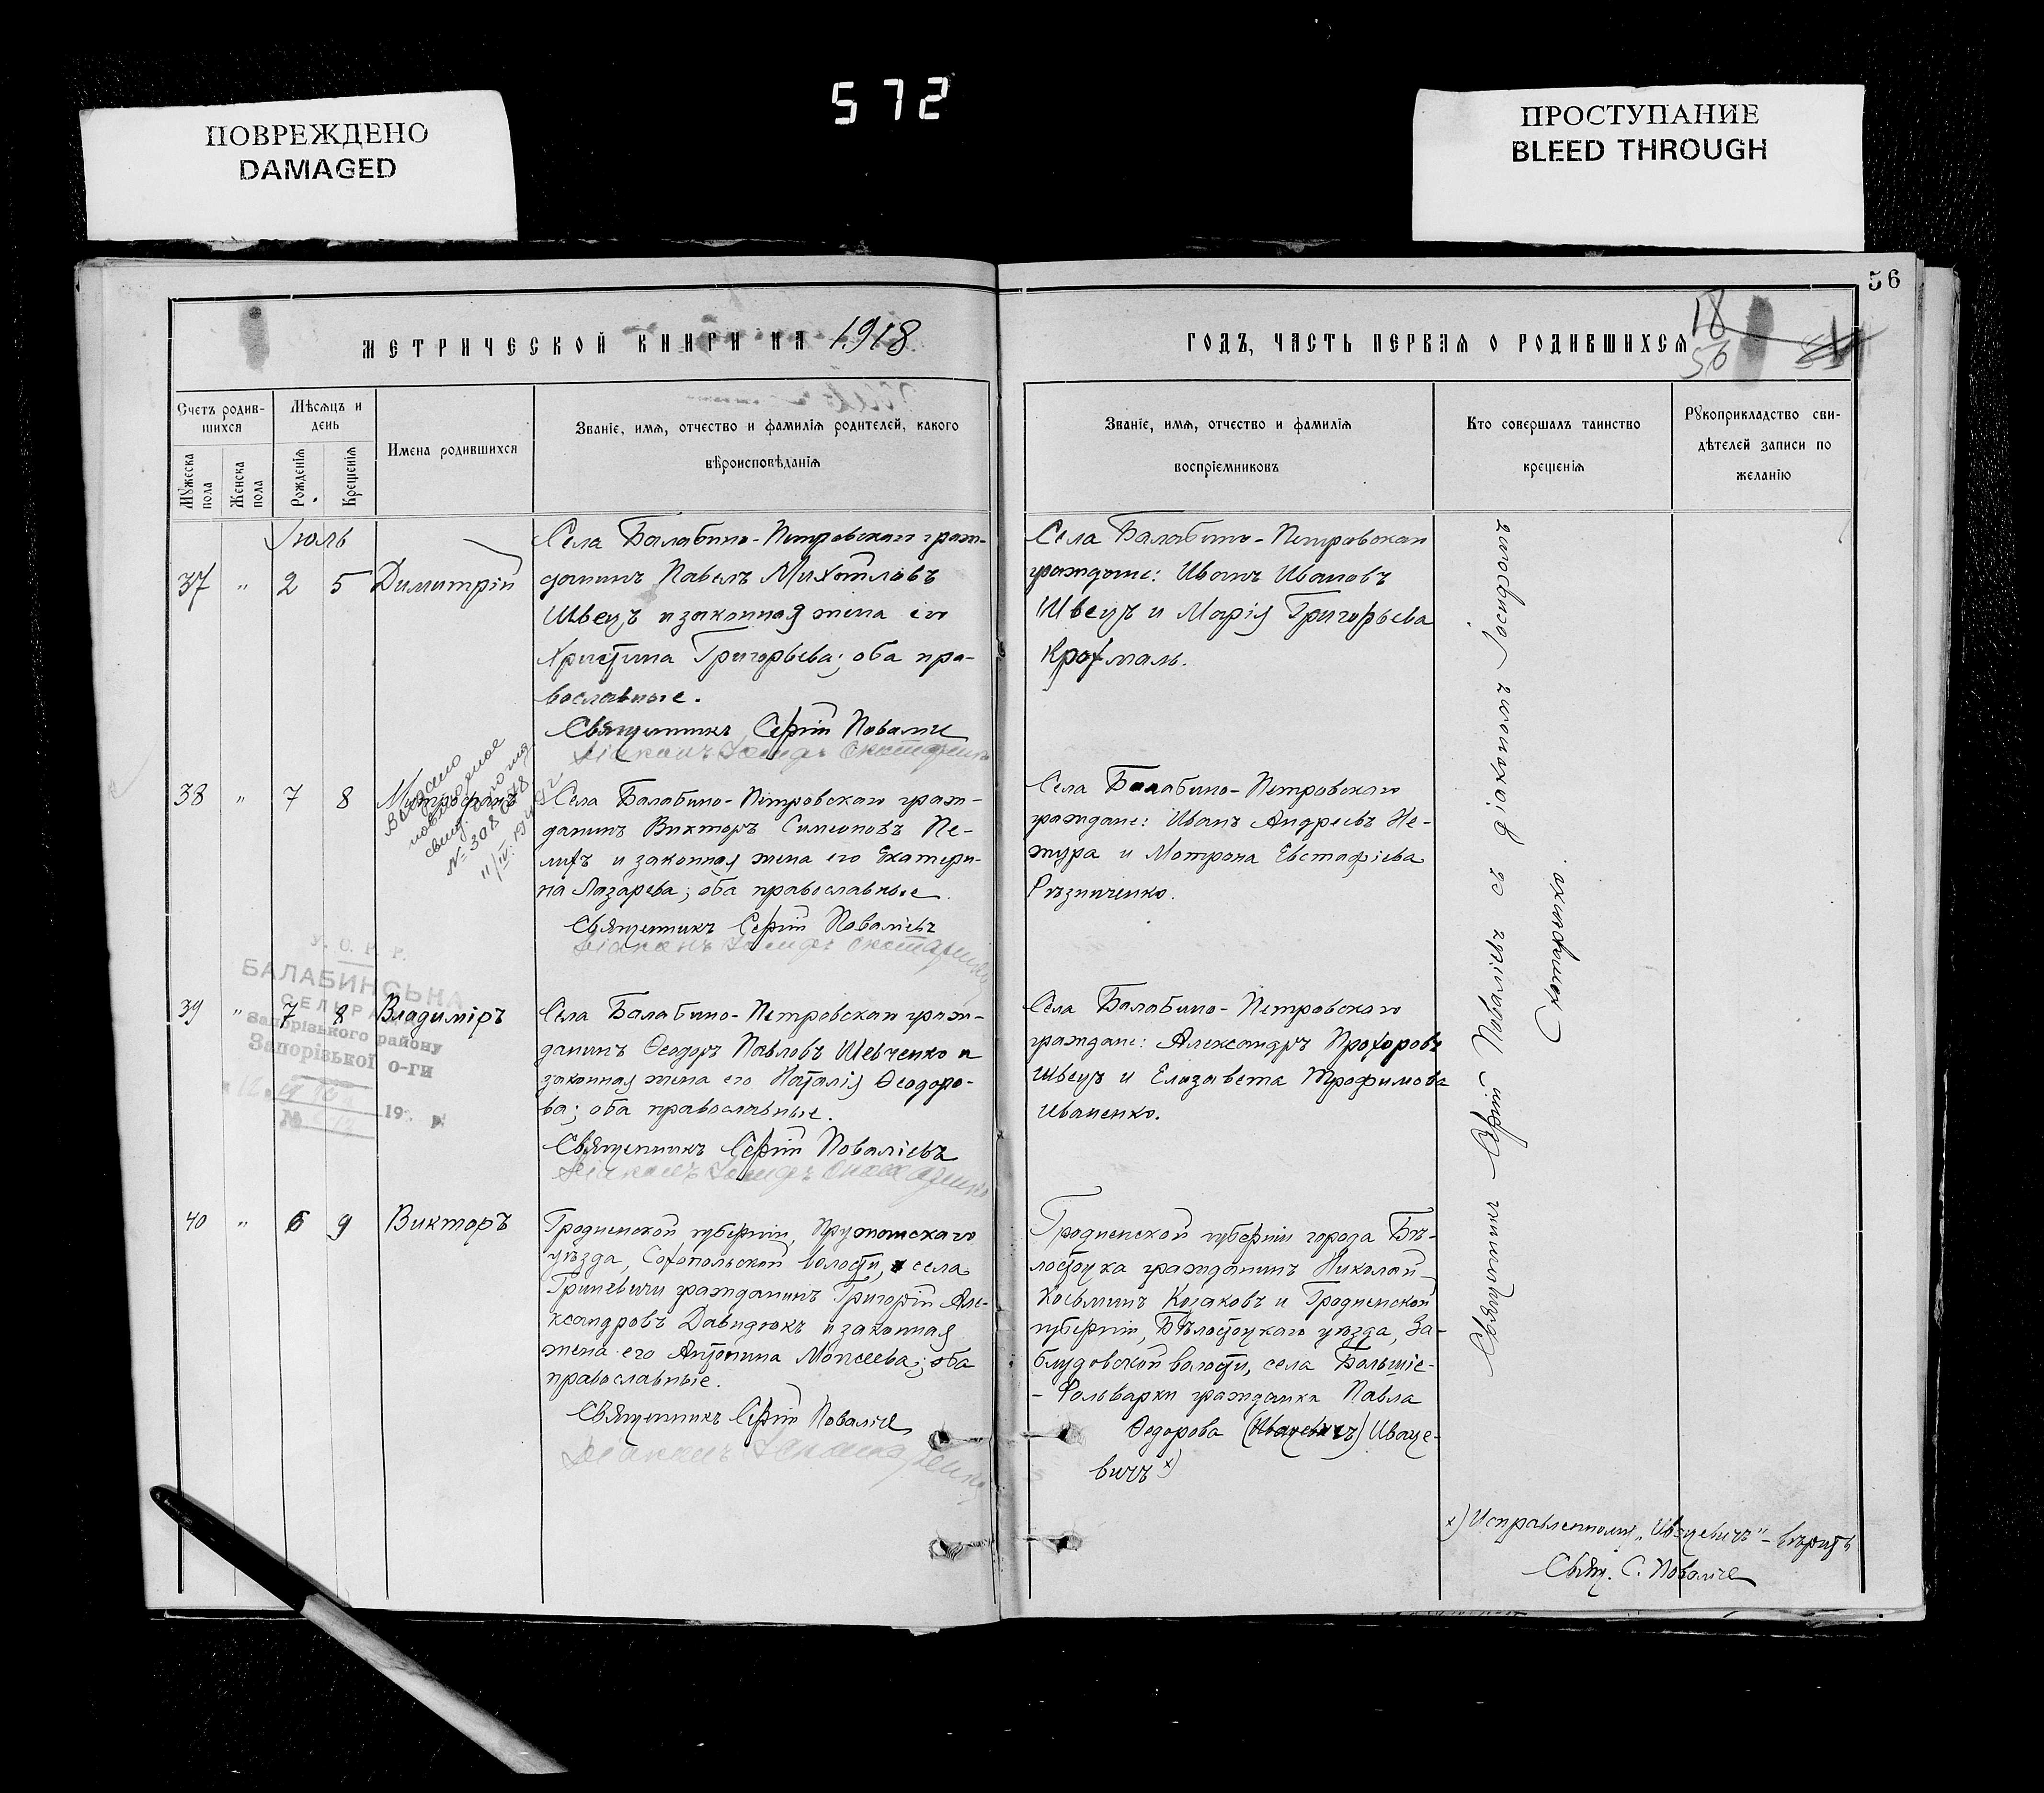 572
ПОВРЕЖДЕНО
DAMAGED
ПРОСТУПАНИЕ
BLEED THROUGH
56
МЕТРИЧЕСКОЙ КНИГИ НА 1918
ГОДЪ, ЧАСТЬ ПЕРВАЯ О РОДИВШИХСЯ
18
56
Счетъ родив-
шихся
Мужеска
пола
Женска
пола
Мѣсяцъ и
день
Рожденія
Крещенія
Имена родившихся
Званіе, имя, отчество и фамилія родителей, какого
вѣроисповѣданія
Званіе, имя, отчество и фамилія
воспріемниковъ
Кто совершалъ таинство
крещенія
Рукоприкладство сви-
дѣтелей записи по
желанію
Іюль
37 " 2 5 Димитрій
Села Балабино-Петровскаго граж-
данинъ Павелъ Михайловъ
Швецъ и законная жена его
Христина Григорьева; оба пра-
вославные.
Священникъ Сергій Поваліевъ
Діаконъ
Села Балабино-Петровскаго
граждане: Иванъ Ивановъ
Швецъ и Марія Григорьева
Крохмаль.
38 " 7 8 Митрофанъ
Выдано
свид.
№ 398
Села Балабино-Петровскаго граж-
данинъ Викторъ Симеоновъ Пе-
лихъ и законная жена его Екатери-
на Лазарева; оба православные.
Священникъ Сергій Поваліевъ
Діаконъ
Села Балабино-Петровскаго
граждане: Иванъ Андреевъ Не-
жура и Матрона Евстафіева
Рѣзниченко.
У. С. Р. Р.
БАЛАБИНСЬКА
СЕЛЬРАДА
Запорізького району
Запорізької о-ги
19
№
39 " 7 8 Владиміръ
Села Балабино-Петровскаго граж-
данинъ Ѳеодоръ Павловъ Шевченко и
законная жена его Наталія Ѳеодоро-
ва; оба православные.
Священникъ Сергій Поваліевъ
Діаконъ
Села Балабино-Петровскаго
граждане: Александръ Прохоровъ
Швецъ и Елизавета Трофимова
Иваненко.
40 " 6 9 Викторъ
Гродненской губерніи, Пружанскаго
уѣзда, Сухопольской волости, села
Гриневичи гражданинъ Григорій Але-
ксандровъ Давидюкъ и законная
жена его Антонина Моисеева; оба
православные.
Священникъ Сергій Поваліевъ
Діаконъ
Гродненской губерніи города Бѣ-
лостока гражданинъ Николай
Косьминъ Козаковъ и Гродненской
губерніи, Бѣлостоцкаго уѣзда, За-
блудовской волости, села Большіе-
-Фольварки гражданка Павла
Ѳедорова (Ивацевичъ) Иваце-
вичъ x)
Священникъ Сергій Поваліевъ съ діакономъ Іосифомъ
x) Исправленному „Ивацевичъ" - вѣрить
Свящ. С. Поваліевъ